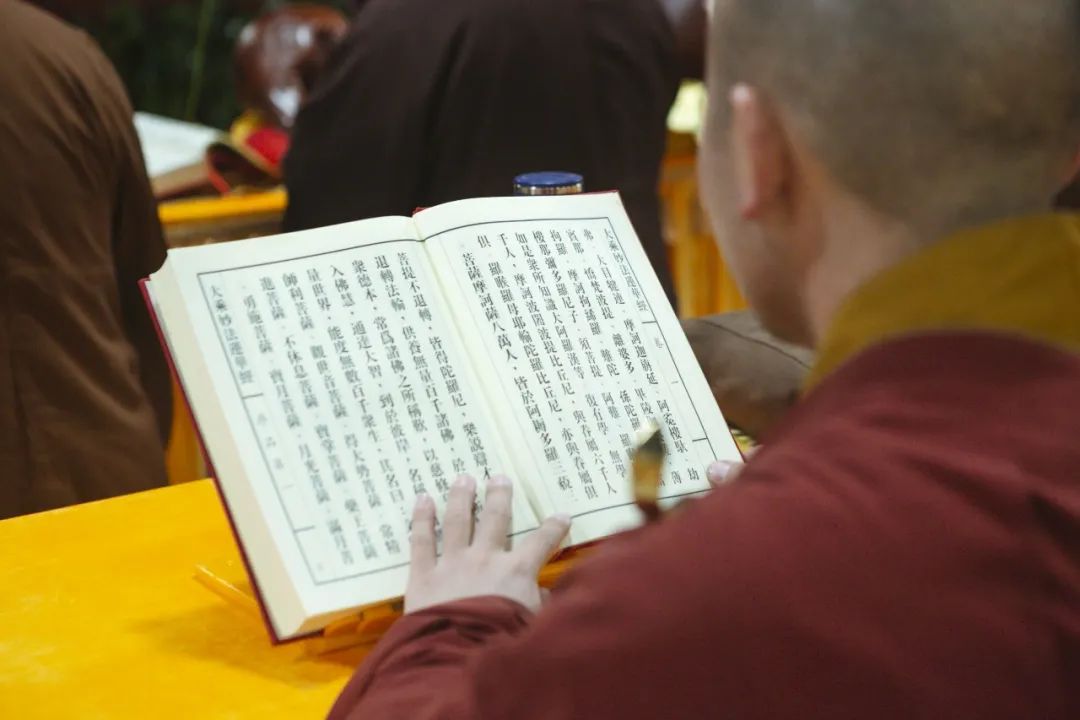 大乘妙法蓮華經 卷一
弗。大目犍連。摩訶迦旃延。阿㝹樓馱。劫
賓那。憍梵波提。離婆多。畢陵
拘羅。摩訶拘絺羅。難陀。孫陀羅
樓那彌多羅尼子。須菩提。阿難。羅
如是衆所知識大阿羅漢等。復有學。無學
千人。摩訶波闍波提比丘尼。與眷屬六千人
俱。羅睺羅母耶輸陀羅比丘尼。亦與眷屬俱
菩薩摩訶薩八萬人。皆於阿耨多羅三藐三
菩提不退轉。皆得陀羅尼。樂說辯才
退轉法輪。供養無量百千諸佛。於
衆德本。常爲諸佛之所稱歎。以慈修
入佛慧。通達大智。到於彼岸。名
量世界。能度無數百千衆生。其名曰
師利菩薩。觀世音菩薩。得大勢菩薩。常精
進菩薩。不休息菩薩。寶掌菩薩。藥王菩薩
勇施菩薩。寶月菩薩。月光菩薩。滿月菩
大乘妙法蓮華經 序品第一